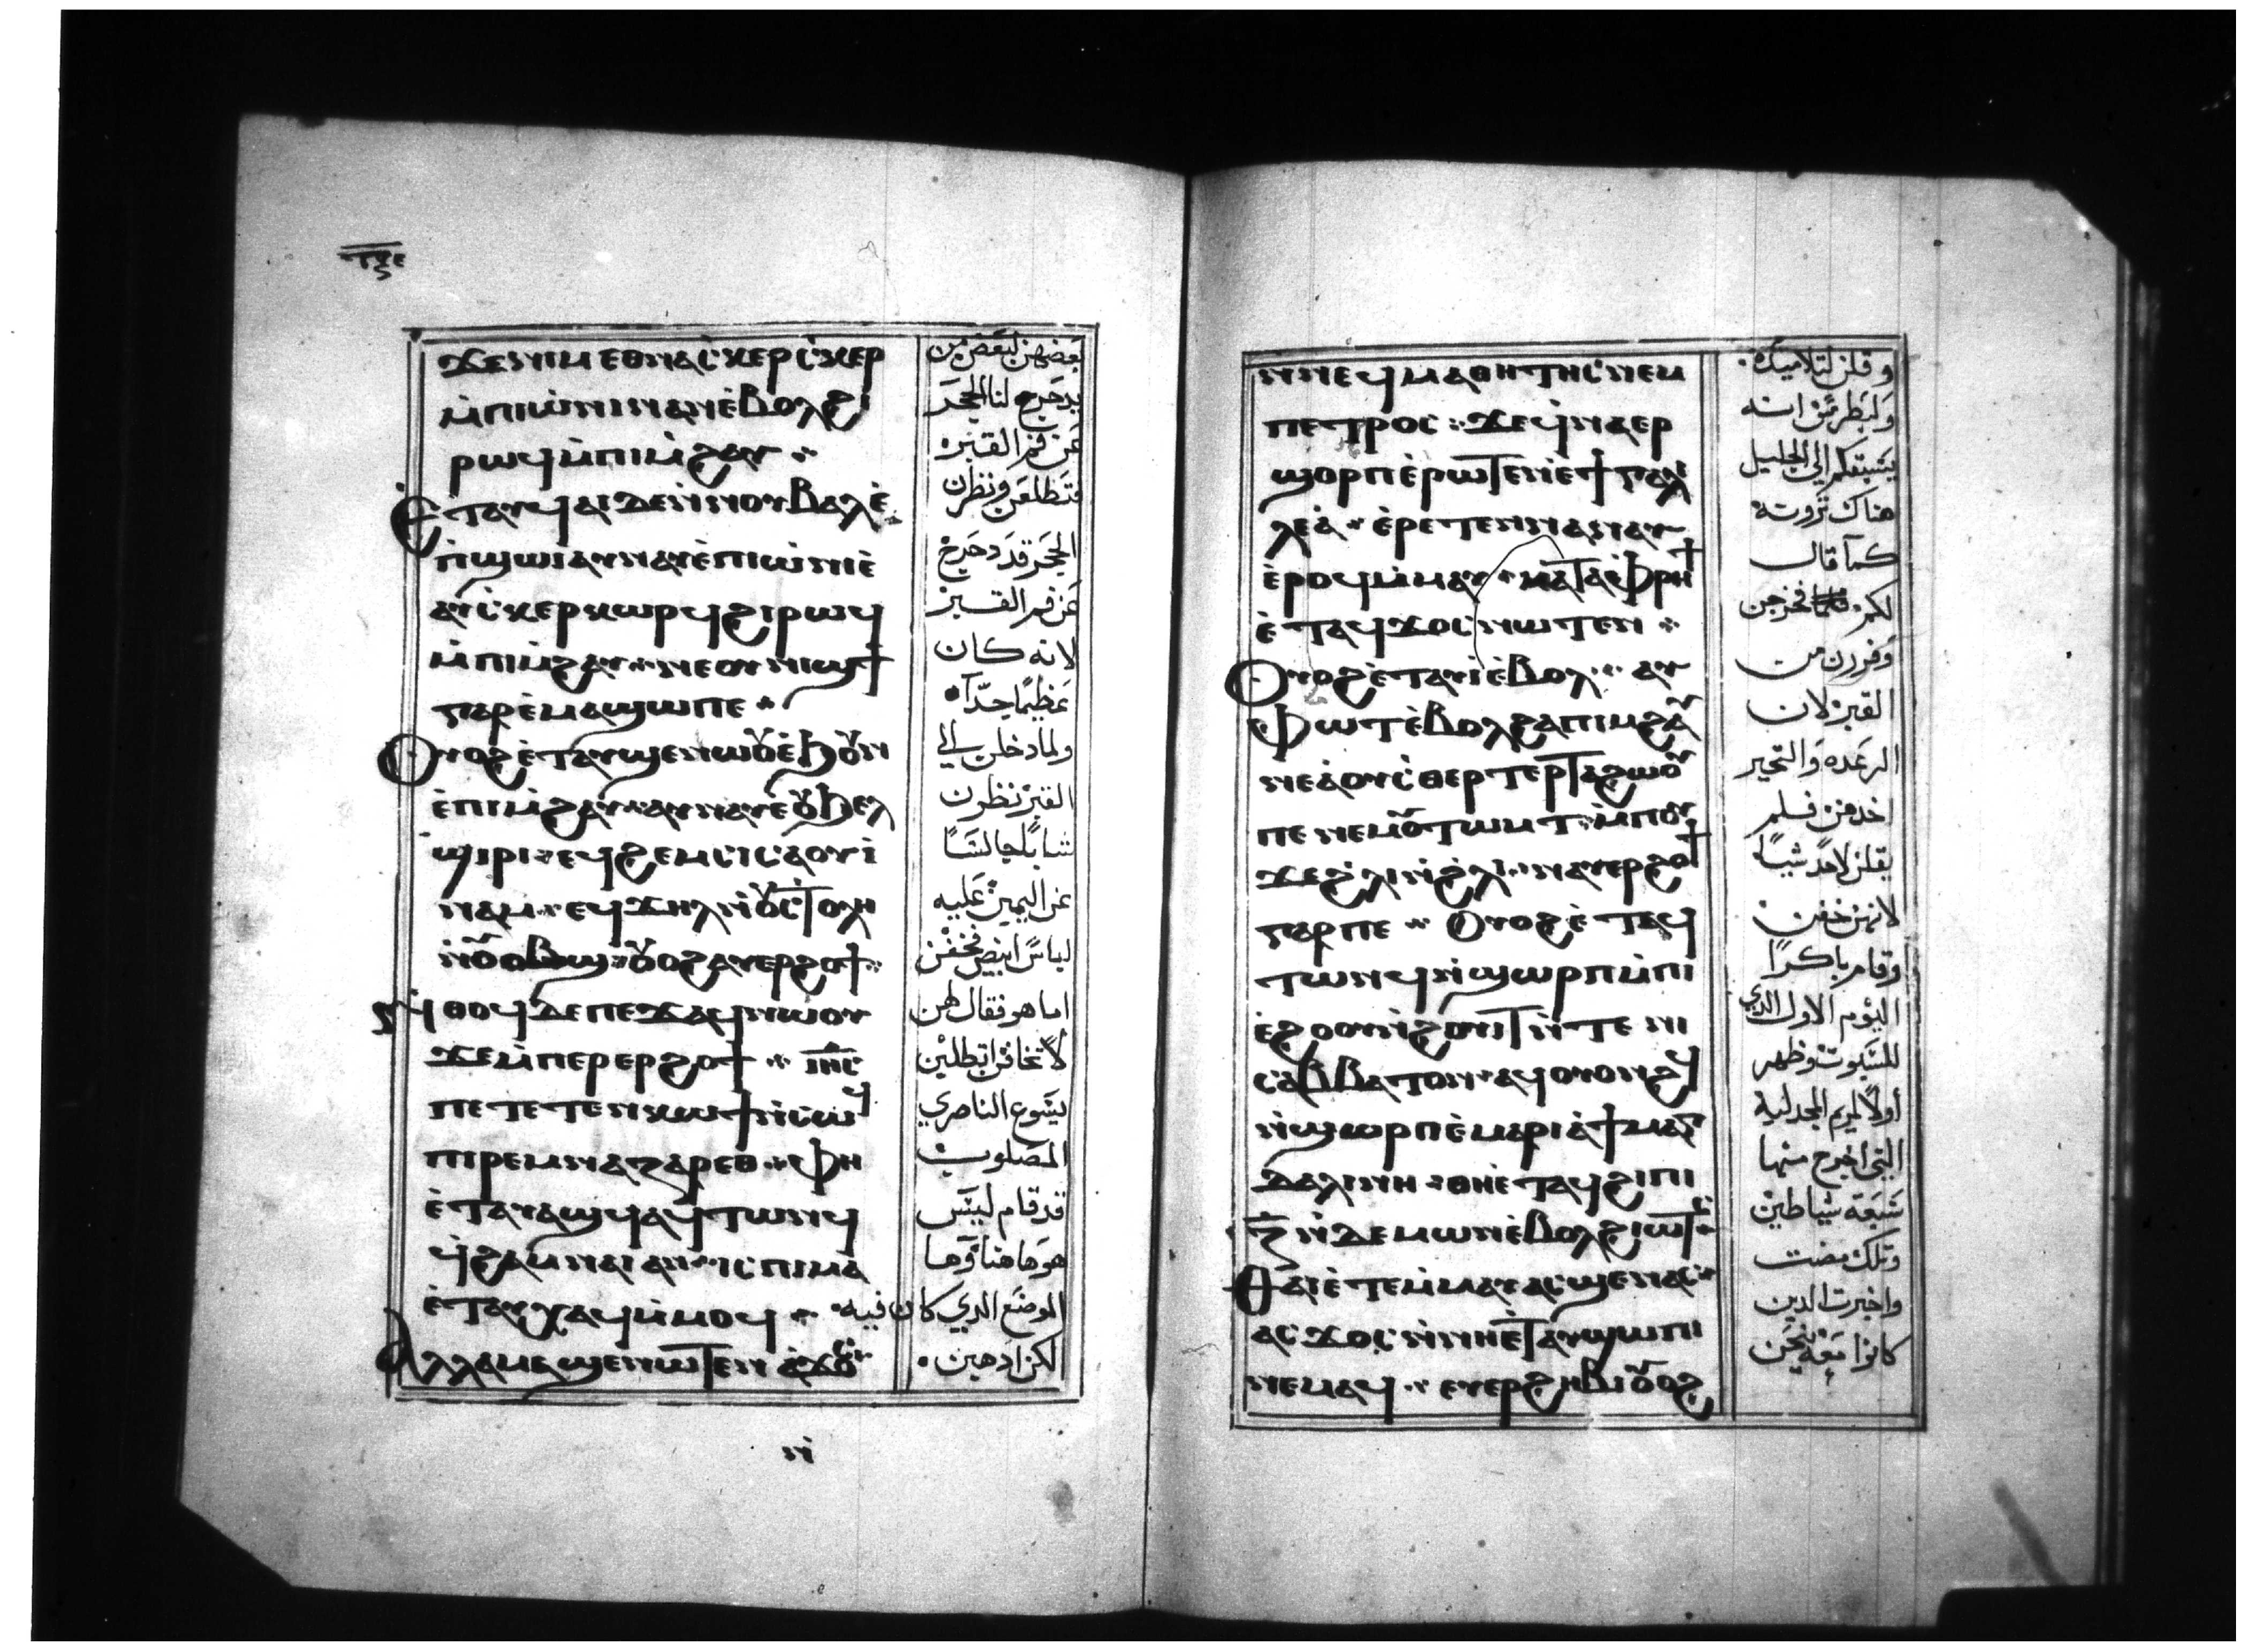 ϫⲉⲛⲓⲙ ⲉⲑⲛⲁⲥ̀ⲕⲉⲣⲥ̀ⲕⲉⲣ
ⲙ̀ⲡⲓⲱ̀ⲛⲓ ⲛⲁⲛ ⲉ̀ⲃⲟⲗϩⲓ
ⲣⲱϥ ⲙ̀ⲡⲓⲙ̀ϩⲁⲩ
Ⲉ̀ⲧⲁⲩϥⲁⲓ ⲇⲉ ⲛ̀ⲛⲟⲩⲃⲁⲗ ⲉ̀
ⲡ̀ϣⲱⲓ ⲁⲩⲛⲁⲩ ⲉ̀ⲡⲓⲱ̀ⲛⲓ ⲉ̀
ⲁⲩⲥ̀ⲕⲉⲣⲕⲱⲣϥ ϩⲓⲣⲱϥ
ⲙ̀ⲡⲓⲙ̀ϩⲁⲩ ⲛⲉ ⲟⲩⲛⲓϣϯ
ⲅⲁⲣ ⲉ̀ⲙⲁϣⲱ ⲡⲉ
Ⲟⲩⲟϩ ⲉ̀ⲧⲁⲩϣⲉⲛⲱⲟⲩ ⲉ̀ϧⲟⲩⲛ
ⲉ̀ⲡⲓⲙ̀ϩⲁⲩ ⲁⲩⲛⲁⲩ ⲉ̀ⲟⲩϧⲉⲗ
ϣⲓⲣⲓ ⲉϥϩⲉⲙⲥⲓ ⲥⲁⲟⲩⲓ
ⲛⲁⲙ ⲉϥϫⲏⲗ ⲛ̀ⲟⲩⲥ̀ⲧⲟⲗⲏ
ⲛ̀ⲟⲩⲱⲃϣ ⲟⲩⲟϩ ⲁⲩⲉⲣϩⲟϯ
ⲛ̀ⲑⲟϥ ⲇⲉ ⲡⲉϫⲁϥ ⲛⲱⲟⲩ
ϫⲉ ⲙ̀ⲡⲉⲣⲉⲣϩⲟϯ ⲓⲏ̅ⲥ̅
ⲡⲉ ⲧⲉⲧⲉⲛⲕⲱϯ ⲛ̀ⲥⲱϥ
ⲡⲓⲣⲉⲙⲛⲁⲍⲁⲣⲉⲑ ⲫⲏ
ⲉ̀ⲧⲁⲩⲁϣϥ ⲁϥⲧⲱⲛϥ
ϥ̀ⲭⲁⲙⲛⲁⲓ ⲁⲛ ⲓⲥ ⲡⲓⲙⲁ
ⲉ̀ⲧⲁⲩⲭⲁϥ ⲙ̀ⲙⲟϥ
Ⲁⲗⲗⲁ ⲙⲁϣⲉⲛⲱⲧⲉⲛ ⲁ̀ϫⲟⲥ
بعضهن لبعض من
يدحرج لنا الحجر
عن فم القبر
فتطلعن ونظرن
الحجر قد دحرج
عن فم القبر
لانه كان
عظيما جدا
ولما دخلن الي
القبر نظرن
شابا جالسا
عن اليمين عليه
لباس ابيض فخفن
اما هو فقال لهن
لا تخافن اتطلبن
يسوع الناصري
المصلوب
قد قام ليس
هو هاهنا وها
الموضع الدي كان فيه
لكن ادهبن
ⲛ̀
ⲛ̀ⲛⲉϥⲙⲁⲑⲏⲧⲏⲥ ⲛⲉⲙ
ⲡⲉⲧⲣⲟⲥ ϫⲉ ϥ̀ⲛⲁⲉⲣ
ϣⲟⲣⲡ ⲉ̀ⲣⲱⲧⲉⲛ ⲉ̀ϯⲅⲁⲗⲓ
ⲗⲉⲁ̀ ⲉ̀ⲣⲉⲧⲉⲛⲛⲁⲛⲁⲩ
ⲉ̀ⲣⲟϥ ⲙ̀ⲙⲁⲩ ⲕⲁⲧⲁ ⲫⲣⲏϯ
ⲉ̀ⲧⲁϥϫⲟⲥ ⲛⲱⲧⲉⲛ
Ⲟⲩⲟϩ ⲉ̀ⲧⲁⲩⲓ̀ ⲉ̀ⲃⲟⲗ ⲁⲩ
ⲫⲱⲧ ⲉ̀ⲃⲟⲗϩⲁ ⲡⲓⲙϩⲁⲩ
ⲛⲉ ⲁ̀ⲟⲩⲥ̀ⲑⲉⲣⲧⲉⲣ ⲧⲁϩⲱⲟⲩ
ⲡⲉ ⲛⲉⲙ ⲟⲩⲧⲱⲙⲧ ⲙ̀ⲡⲟⲩ
ϫⲉ ϩ̀ⲗⲓ ⲛ̀ϩ̀ⲗⲓ ⲛⲁⲩⲉⲣϩⲟϯ
ⲅⲁⲣ ⲡⲉ Ⲟⲩⲟϩ ⲉ̀ⲧⲁϥ
ⲧⲱⲛϥ ⲛ̀ϣⲱⲣⲡ ⲙ̀ⲡⲓ
ⲉ̀ϩⲟⲟⲩ ⲛ̀ϩⲟⲩⲓⲧ ⲛ̀ⲧⲉ ⲛⲓ
ⲥⲁⲃⲃⲁⲧⲟⲛ ⲁϥⲟⲩⲟⲛϩϥ
ⲛ̀ϣⲟⲣⲡ ⲉ̀ⲙⲁⲣⲓⲁ̀ ϯⲙⲁⲅ
ⲇⲁⲗⲓⲛⲏ ⲑⲏ ⲉ̀ⲧⲁϥϩⲓ ⲡⲓ
ⲍ̅ ⲛ̀ⲇⲉⲙⲱⲛ ⲉ̀ⲃⲟⲗ ϩⲓⲱⲧⲥ
Ⲑⲁⲓ ⲉ̀ⲧⲉⲙ̀ⲙⲁⲩ ⲁⲥϣⲉⲛⲁⲥ
ⲁⲥϫⲟⲥ ⲛ̀ⲛⲏ ⲉ̀ⲧⲁⲩϣⲱⲡⲓ
ⲛⲉⲙⲁϥ ⲉⲩⲉⲣϩⲏⲃⲓ ⲟⲩⲟϩ
وقلن لتلاميده
ولبطرس انه
يسبقكم الي الجليل
هناك ترونه
كما قال
لكم فخرجن
وفررن من
القبر لان
الرعده والتحير
اخدهن فلم
يقلن لاحد شيا
لانهن خفن
وقام باكرا
اليوم الاول الدي
للسبوت وظهر
اولا لمريم المجدلية
التي اخرج منها
سبعة شياطين
وتلك مضت
واخبرت الدين
كانوا معه